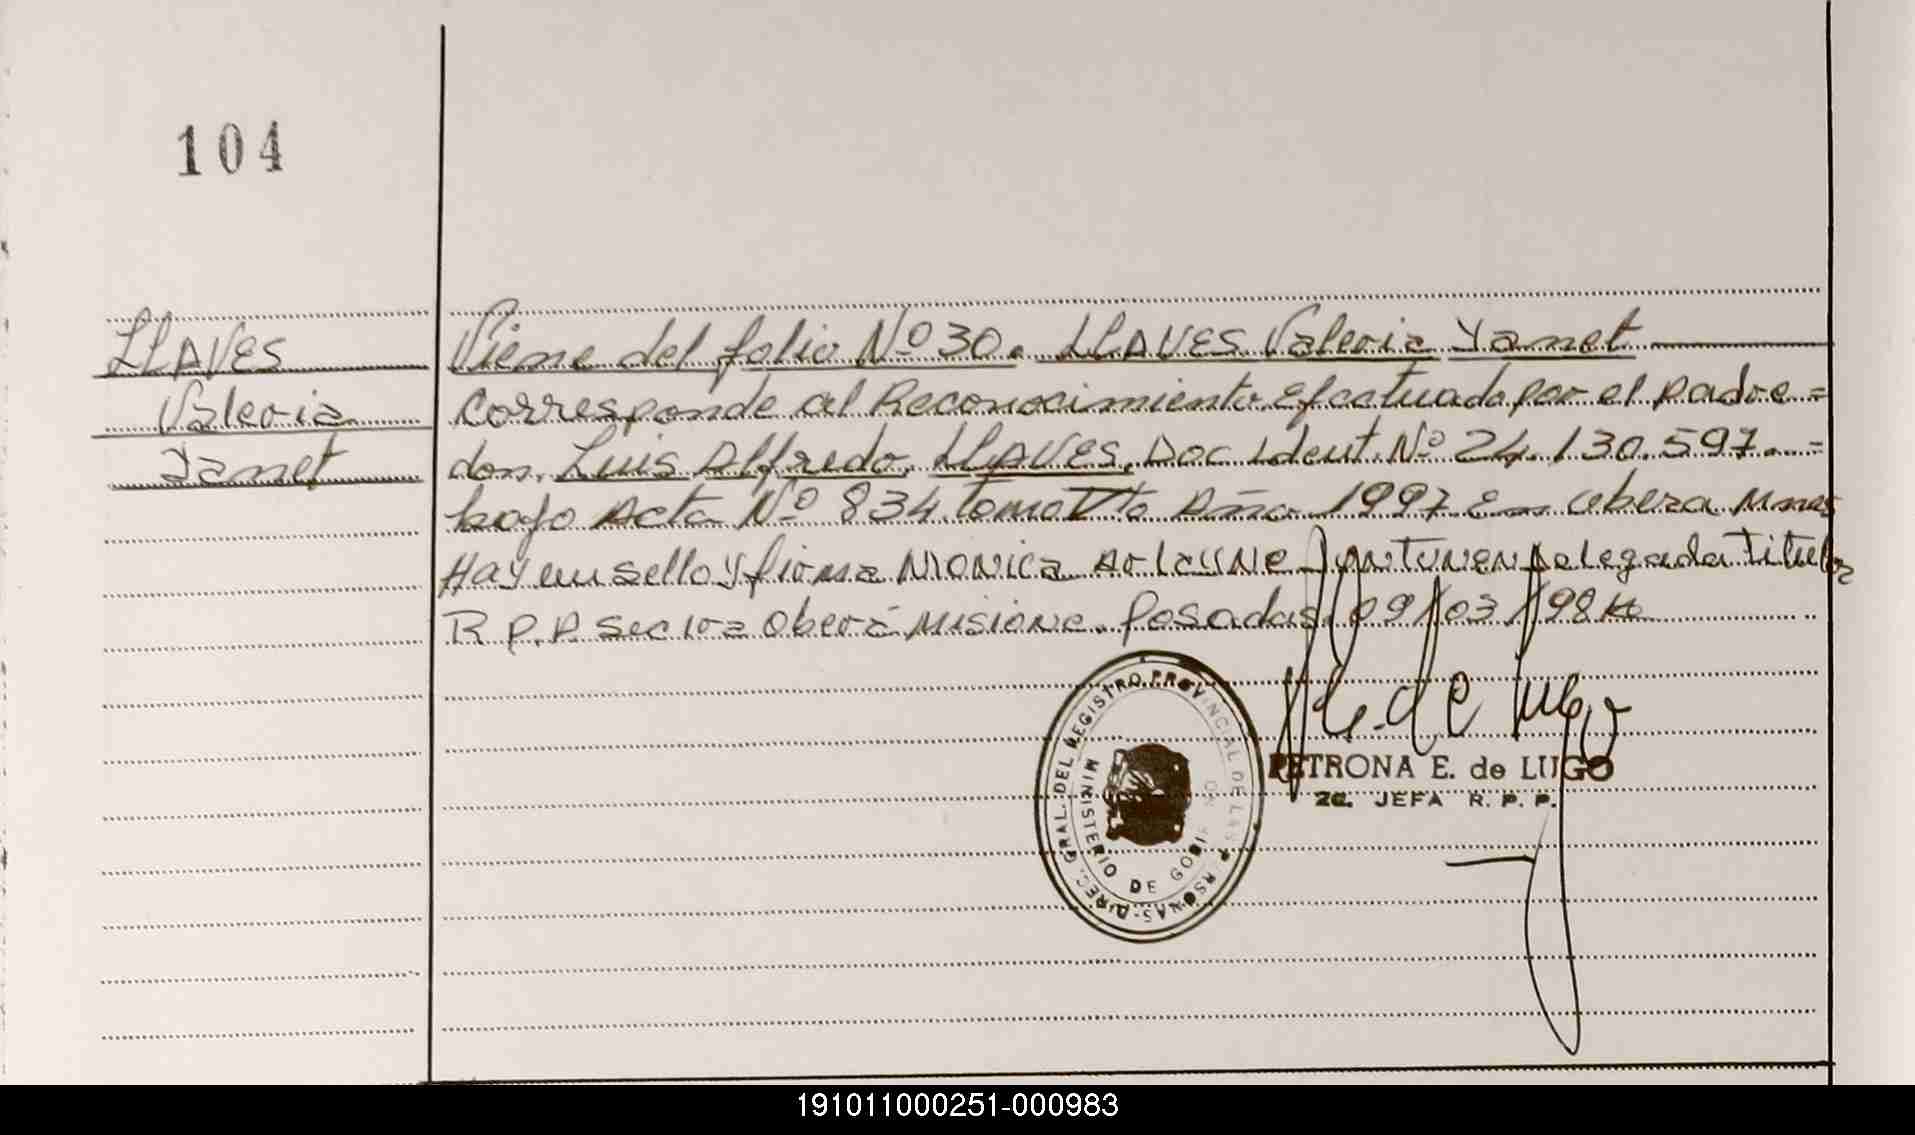 104
LLAVES
Valeria
Yanet
Viene del folio Nº 30. LLAVES Valeria Yanet
corresponde al Reconocimiento Efectuado por el padre =
don. Luis Alfredo, LLAVES, Doc Ident. Nº 24.130.597. =
bajo Acta Nº 834 tomo Vto Año 1997 En Obera Mnes
Hay un sello y firma Monica Arlayne Delegada Titular
R.P.P Sec 1ra Oberá Misione. Posadas 09/03/98
DIREC. GRAL. DEL REGISTRO PROVINCIAL DE LAS PERSONAS
MINISTERIO DE GOBIERNO
PETRONA E. de LUGO
2a. JEFA R. P. P.
191011000251-000983